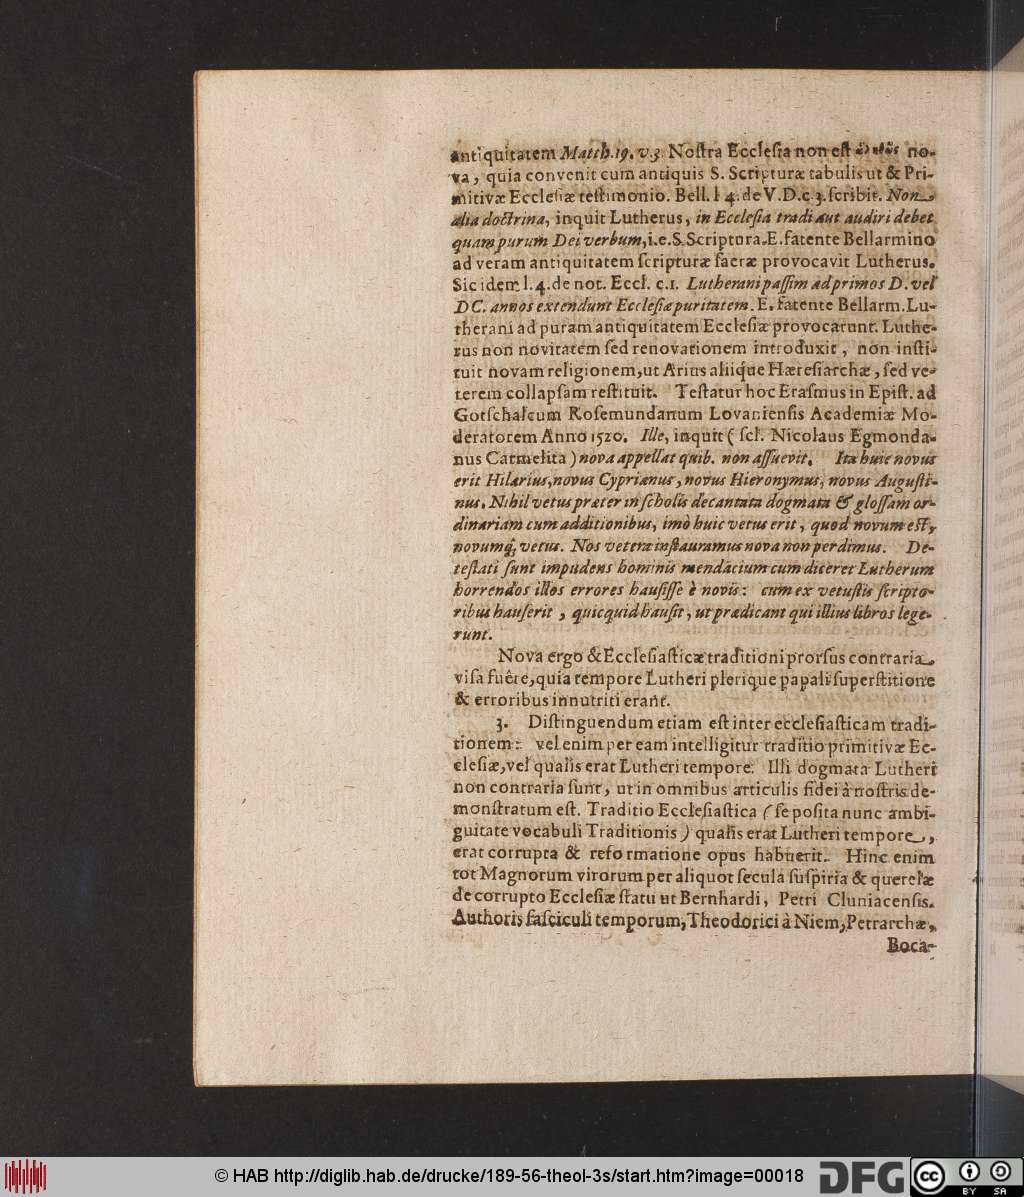 antiquitatem Matth. 19. v. 3 Nostra Ecclesia non est no-
va, quia convenit cum antiquis S. Scripturæ tabulis ut & Pri-
mitivæ Ecclesiæ testimonio. Bell. l 4. de V. D. c. 3. scribit. Non
alia doctrina, inquit Lutherus, in Ecclesia tradi aut audiri debet
quam purum Dei verbum, i. e. S. Scriptura. E. fatente Bellarmino
ad veram antiquitatem scripturæ sacræ provocavit Lutherus.
Sic idem l. 4. de not. Eccl. c. 1. Lutherani passim ad primos D. vel
DC. annos extendunt Ecclesiæ puritatem. E. fatente Bellarm. Lu-
therani ad puram antiquitatem Ecclesiæ provocarunt. Luthe-
rus non novitatem sed renovationem introduxit, non insti-
tuit novam religionem, ut Arius aliique Hæresiarchæ, sed ve-
terem collapsam restituit. Testatur hoc Erasmus in Epist. ad
Gotschalcum Rosemundanum Lovaniensis Academiæ Mo-
deratorem Anno 1520. Ille, inquit ( scl. Nicolaus Egmonda-
nus Carmelita ) nova appellat quib. non assuevit. Ita huic novus
erit Hilarius, novus Cyprianus, novus Hieronymus, novus Augusti-
nus. Nihil vetus præter in scholis decantata dogmata & glossam or-
dinariam cum additionibus, imò huic vetus erit, quod novum est,
novumq; vetus. Nos vetera instauramus nova non perdimus. De-
testati sunt impudens hominis mendacium cum diceret Lutherum
horrendos illos errores hausisse è novis: cum ex vetustis scripto-
ribus hauserit, quicquid hausit, ut prædicant qui illius libros lege-
runt.
Nova ergo & Ecclesiasticæ traditioni prorsus contraria
visa fuêre, quia tempore Lutheri plerique papali superstitione
& erroribus innutriti erant.
3. Distinguendum etiam est inter ecclesiasticam tradi-
tionem: vel enim per eam intelligitur traditio primitivæ Ec-
clesiæ, vel qualis erat Lutheri tempore. Illi dogmata Lutheri
non contraria sunt, ut in omnibus articulis fidei à nostris de-
monstratum est. Traditio Ecclesiastica ( se posita nunc ambi-
guitate vocabuli Traditionis ) qualis erat Lutheri tempore,
erat corrupta & reformatione opus habuerit. Hinc enim
tot Magnorum virorum per aliquot secula suspiria & querelæ
de corrupto Ecclesiæ statu ut Bernhardi, Petri Cluniacensis.
Authoris fasciculi temporum, Theodorici à Niem, Petrarchæ,
Boca-
© HAB http://diglib.hab.de/drucke/189-56-theol-3s/start.htm?image=00018 DFG cc BY SA